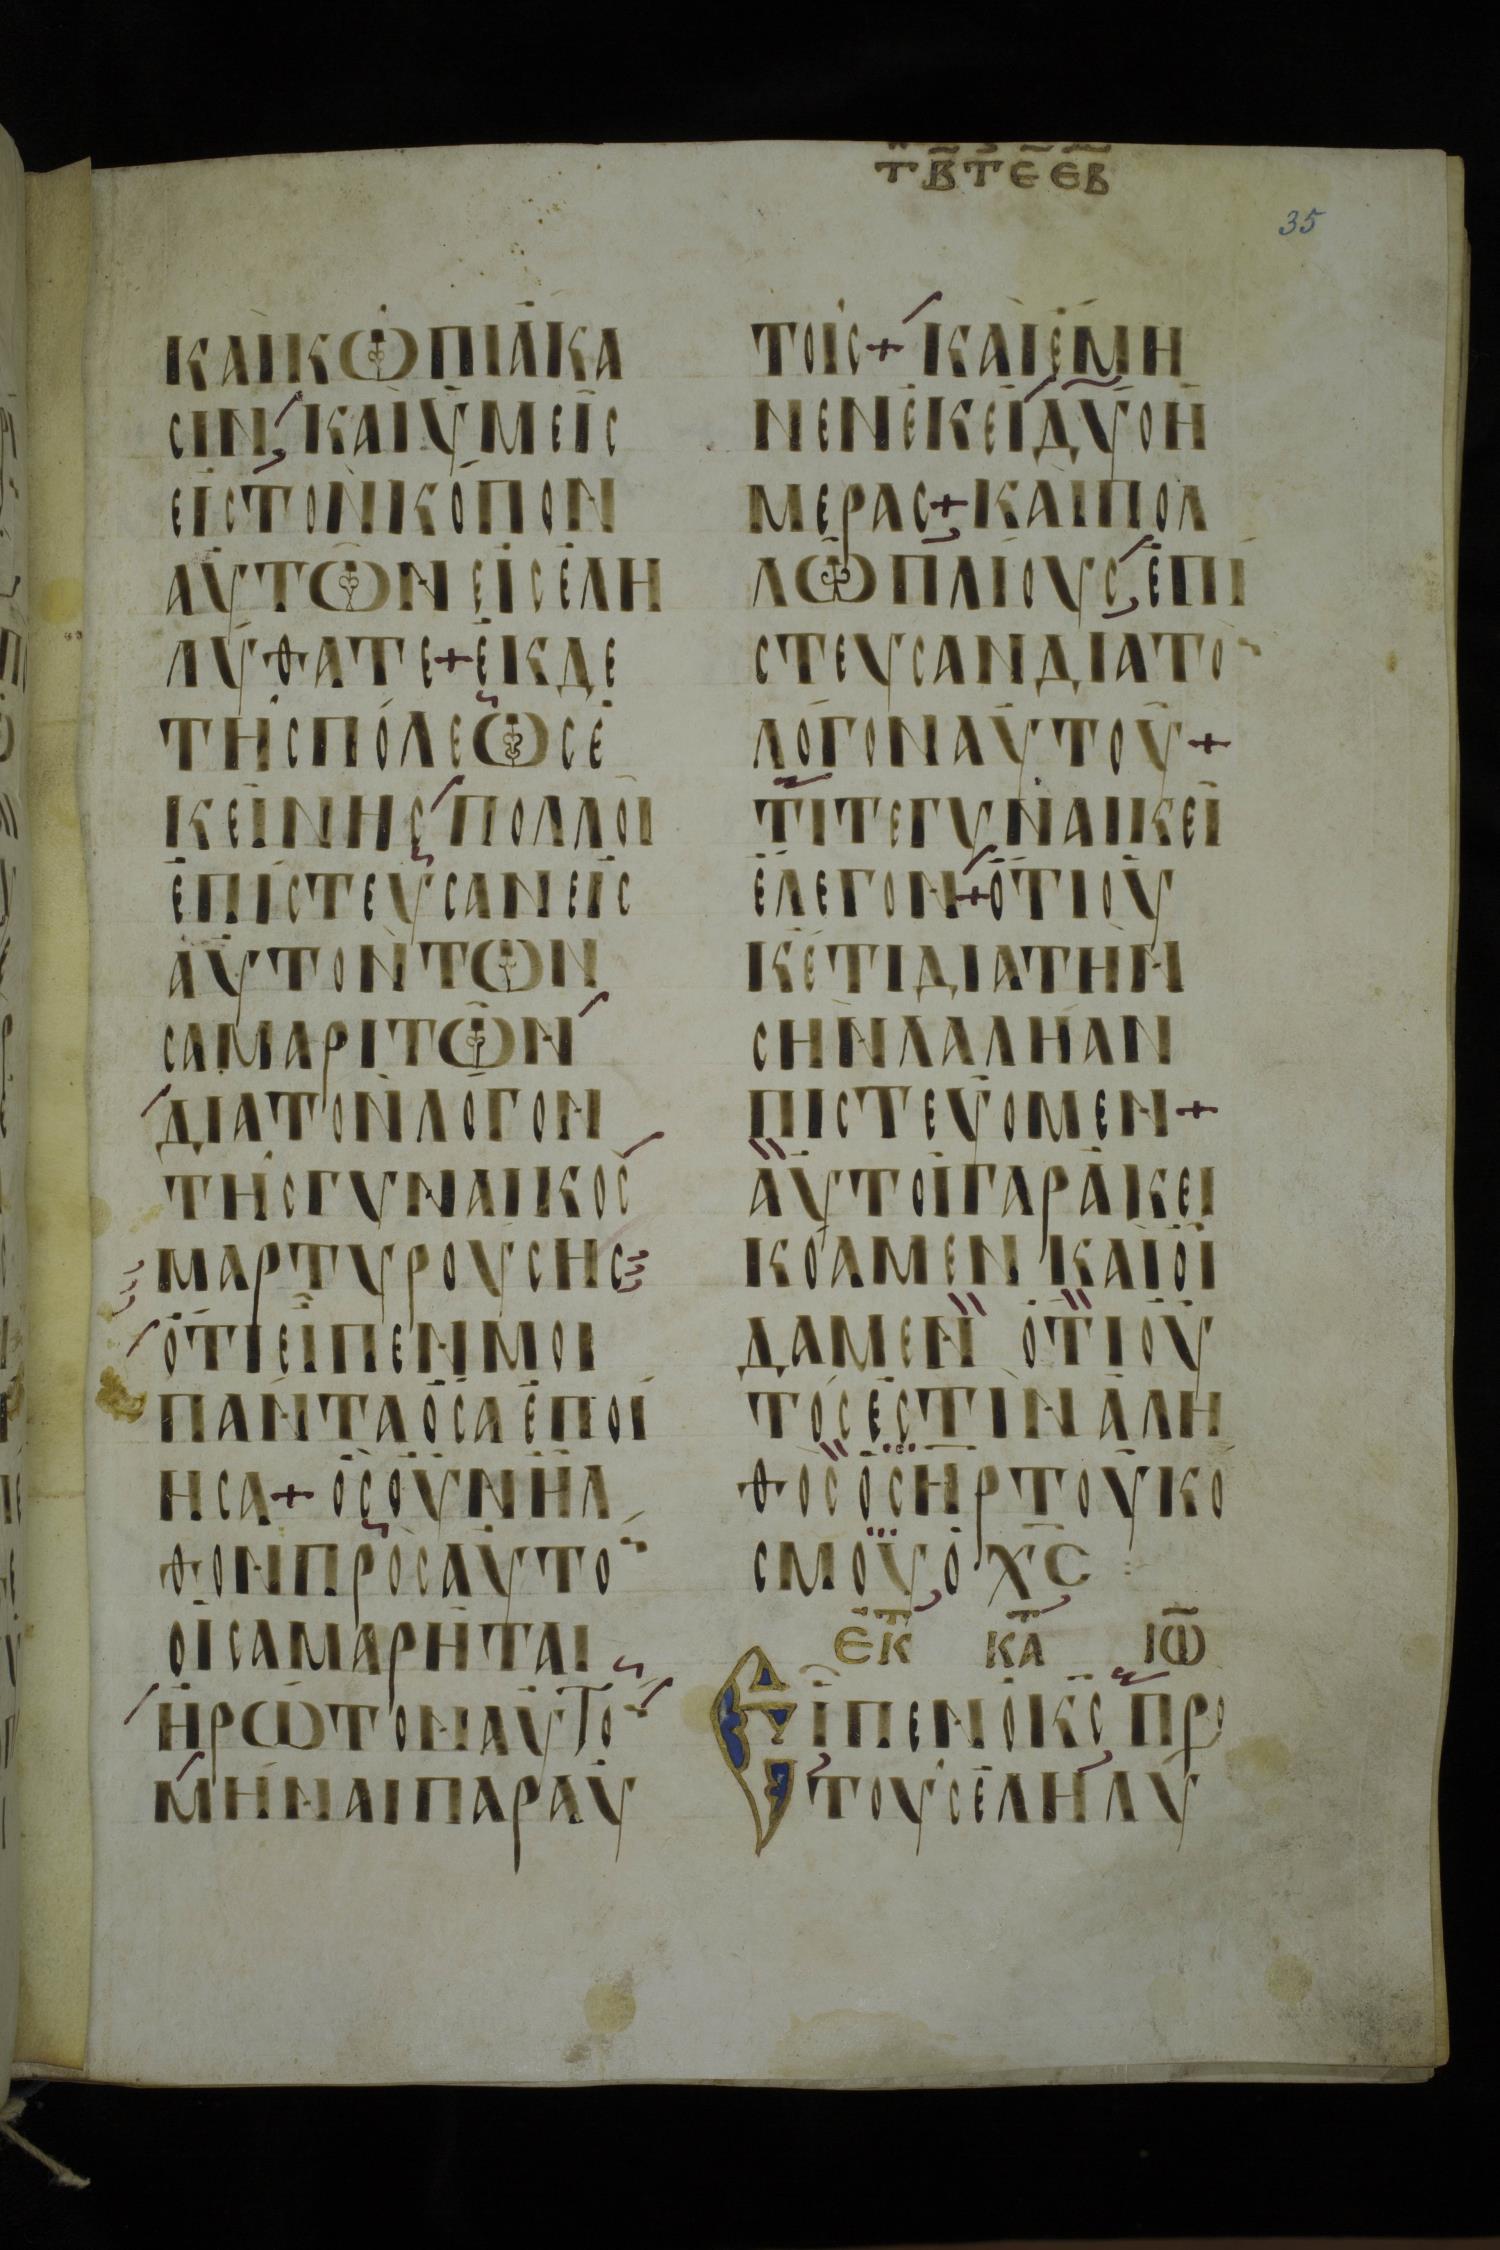 ΤΒ̅ΤΕ̅ΕΒ̅
35
ΚΑΙΚΩΠΙΑΚΑ
ΣΙΝ ΚΑΙΥΜΕΙΣ
ΕΙΣΤΟΝΚΟΠΟΝ
ΑΥΤΩΝΕΙΣΕΛΗ
ΛΥΘΑΤΕ+ΕΚΔΕ
ΤΗΣΠΟΛΕΩΣΕ
ΚΕΙΝΗΣ ΠΟΛΛΟΙ
ΕΠΙΣΤΕΥΣΑΝΕΙΣ
ΑΥΤΟΝΤΩΝ
ΣΑΜΑΡΙΤΩΝ
ΔΙΑΤΟΝΛΟΓΟΝ
ΤΗΣΓΥΝΑΙΚΟΣ
ΜΑΡΤΥΡΟΥΣΗΣ
ΟΤΙΕΙΠΕΝΜΟΙ
ΠΑΝΤΑΟΣΑΕΠΟΙ
ΗΣΑ+ΟΣΟΥΝΗΛ
ΘΟΝΠΡΟΣΑΥΤΟ̅
ΟΙΣΑΜΑΡΗΤΑΙ
ΗΡΩΤΟΝΑΥΤΟ̅
ΜΗΝΑΙΠΑΡΑΥ
ΤΟΙΣ+ΚΑΙΕΜΗ
ΝΕΝΕΚΕΙΔΥΟΗ
ΜΕΡΑΣ+ΚΑΙΠΟΛ
ΛΩΠΛΙΟΥΣ ΕΠΙ
ΣΤΕΥΣΑΝΔΙΑΤΟ̅
ΛΟΓΟΝΑΥΤΟΥ+
ΤΙΤΕΓΥΝΑΙΚΕΙ
ΕΛΕΓΟΝ+ΟΤΙΟΥ
ΚΕΤΙΔΙΑΤΗΝ
ΣΗΝΛΑΛΗΑΝ
ΠΙΣΤΕΥΟΜΕΝ+
ΑΥΤΟΙΓΑΡΑΚΕΙ
ΚΟΑΜΕΝ ΚΑΙΟΙ
ΔΑΜΕΝ ΟΤΙΟΥ
ΤΟΣΕΣΤΙΝΑΛΗ
ΘΟΣΟΣΗΡΤΟΥΚΟ
ΣΜΟΥΟ Χ̅Σ
ΕΚ ΚΑ ΙΩ̅
ΕΙΠΕΝΟΚΣ ΠΡΟ
ΤΟΥΣΕΛΗΛΥ